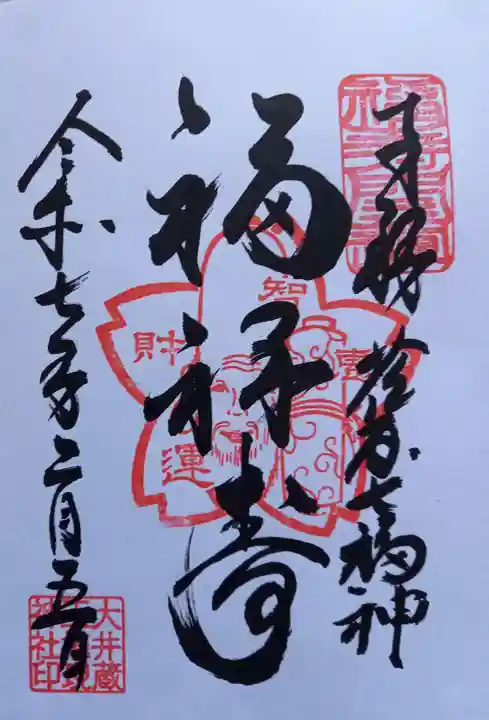 荏原七福神
福禄寿
令和七年二月五日
知
財
運
大井蔵
王権現
神社印